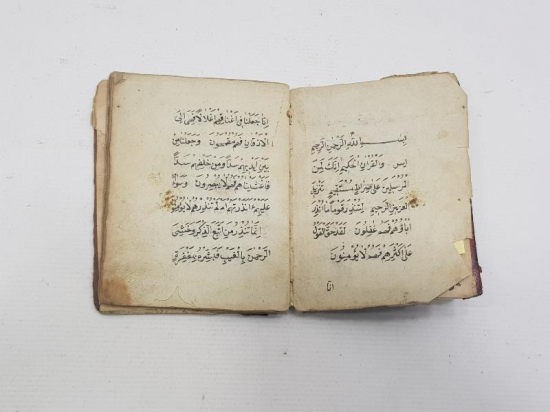 بِسْمِ اللّٰهِ الرَّحْمٰنِ الرَّحِيمِ
يس وَالْقُرْاٰنِ الْحَكِيمِ اِنَّكَ لَمِنَ
الْمُرْسَلِينَ عَلٰى صِرَاطٍ مُسْتَقِيمٍ تَنْزِيلَ
الْعَزِيزِ الرَّحِيمِ لِتُنْذِرَ قَوْمًا مَا اُنْذِرَ
اٰبَاؤُهُمْ فَهُمْ غَافِلُونَ لَقَدْ حَقَّ الْقَوْلُ
عَلٰى اَكْثَرِهِمْ فَهُمْ لَا يُؤْمِنُونَ
انا
اِنَّا جَعَلْنَا فِي اَعْنَاقِهِمْ اَغْلَالًا فَهِيَ اِلَى
الْاَذْقَانِ فَهُمْ مُقْمَحُونَ وَجَعَلْنَا مِنْ
بَيْنِ اَيْدِيهِمْ سَدًّا وَمِنْ خَلْفِهِمْ سَدًّا
فَاَغْشَيْنَاهُمْ فَهُمْ لَا يُبْصِرُونَ وَسَوَاءٌ
عَلَيْهِمْ ءَاَنْذَرْتَهُمْ اَمْ لَمْ تُنْذِرْهُمْ لَا يُؤْمِنُونَ
اِنَّمَا تُنْذِرُ مَنِ اتَّبَعَ الذِّكْرَ وَخَشِيَ
الرَّحْمٰنَ بِالْغَيْبِ فَبَشِّرْهُ بِمَغْفِرَةٍ